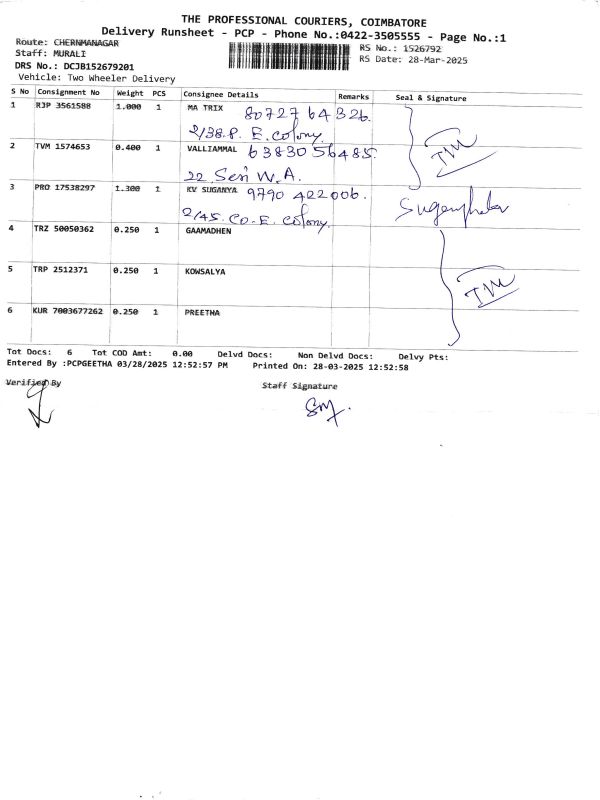 THE PROFESSIONAL COURIERS, COIMBATORE
Delivery Runsheet - PCP - Phone No.:0422-3505555 - Page No.:1
Route: CHERNMANAGAR
RS No.: 1526792
Staff: MURALI
RS Date: 28-Mar-2025
DRS No.: DCJB152679201
Vehicle: Two Wheeler Delivery
S No Consignment No Weight PCS Consignee Details Remarks Seal & Signature
1 RJP 3561588 1.000 1 MA TRIX 8072764326.
2/38.P. E. colony.
2 TVM 1574653 0.400 1 VALLIAMMAL 6383056485.
22 Seri W.A.
3 PRO 17538297 1.300 1 KV SUGANYA 9790 422006.
2/45. CO-E. Colony.
4 TRZ 50050362 0.250 1 GAAMADHEN
5 TRP 2512371 0.250 1 KOWSALYA
6 KUR 7003677262 0.250 1 PREETHA
Tot Docs: 6 Tot COD Amt: 0.00 Delvd Docs: Non Delvd Docs: Delvy Pts:
Entered By :PCPGEETHA 03/28/2025 12:52:57 PM Printed On: 28-03-2025 12:52:58
Verified By Staff Signature